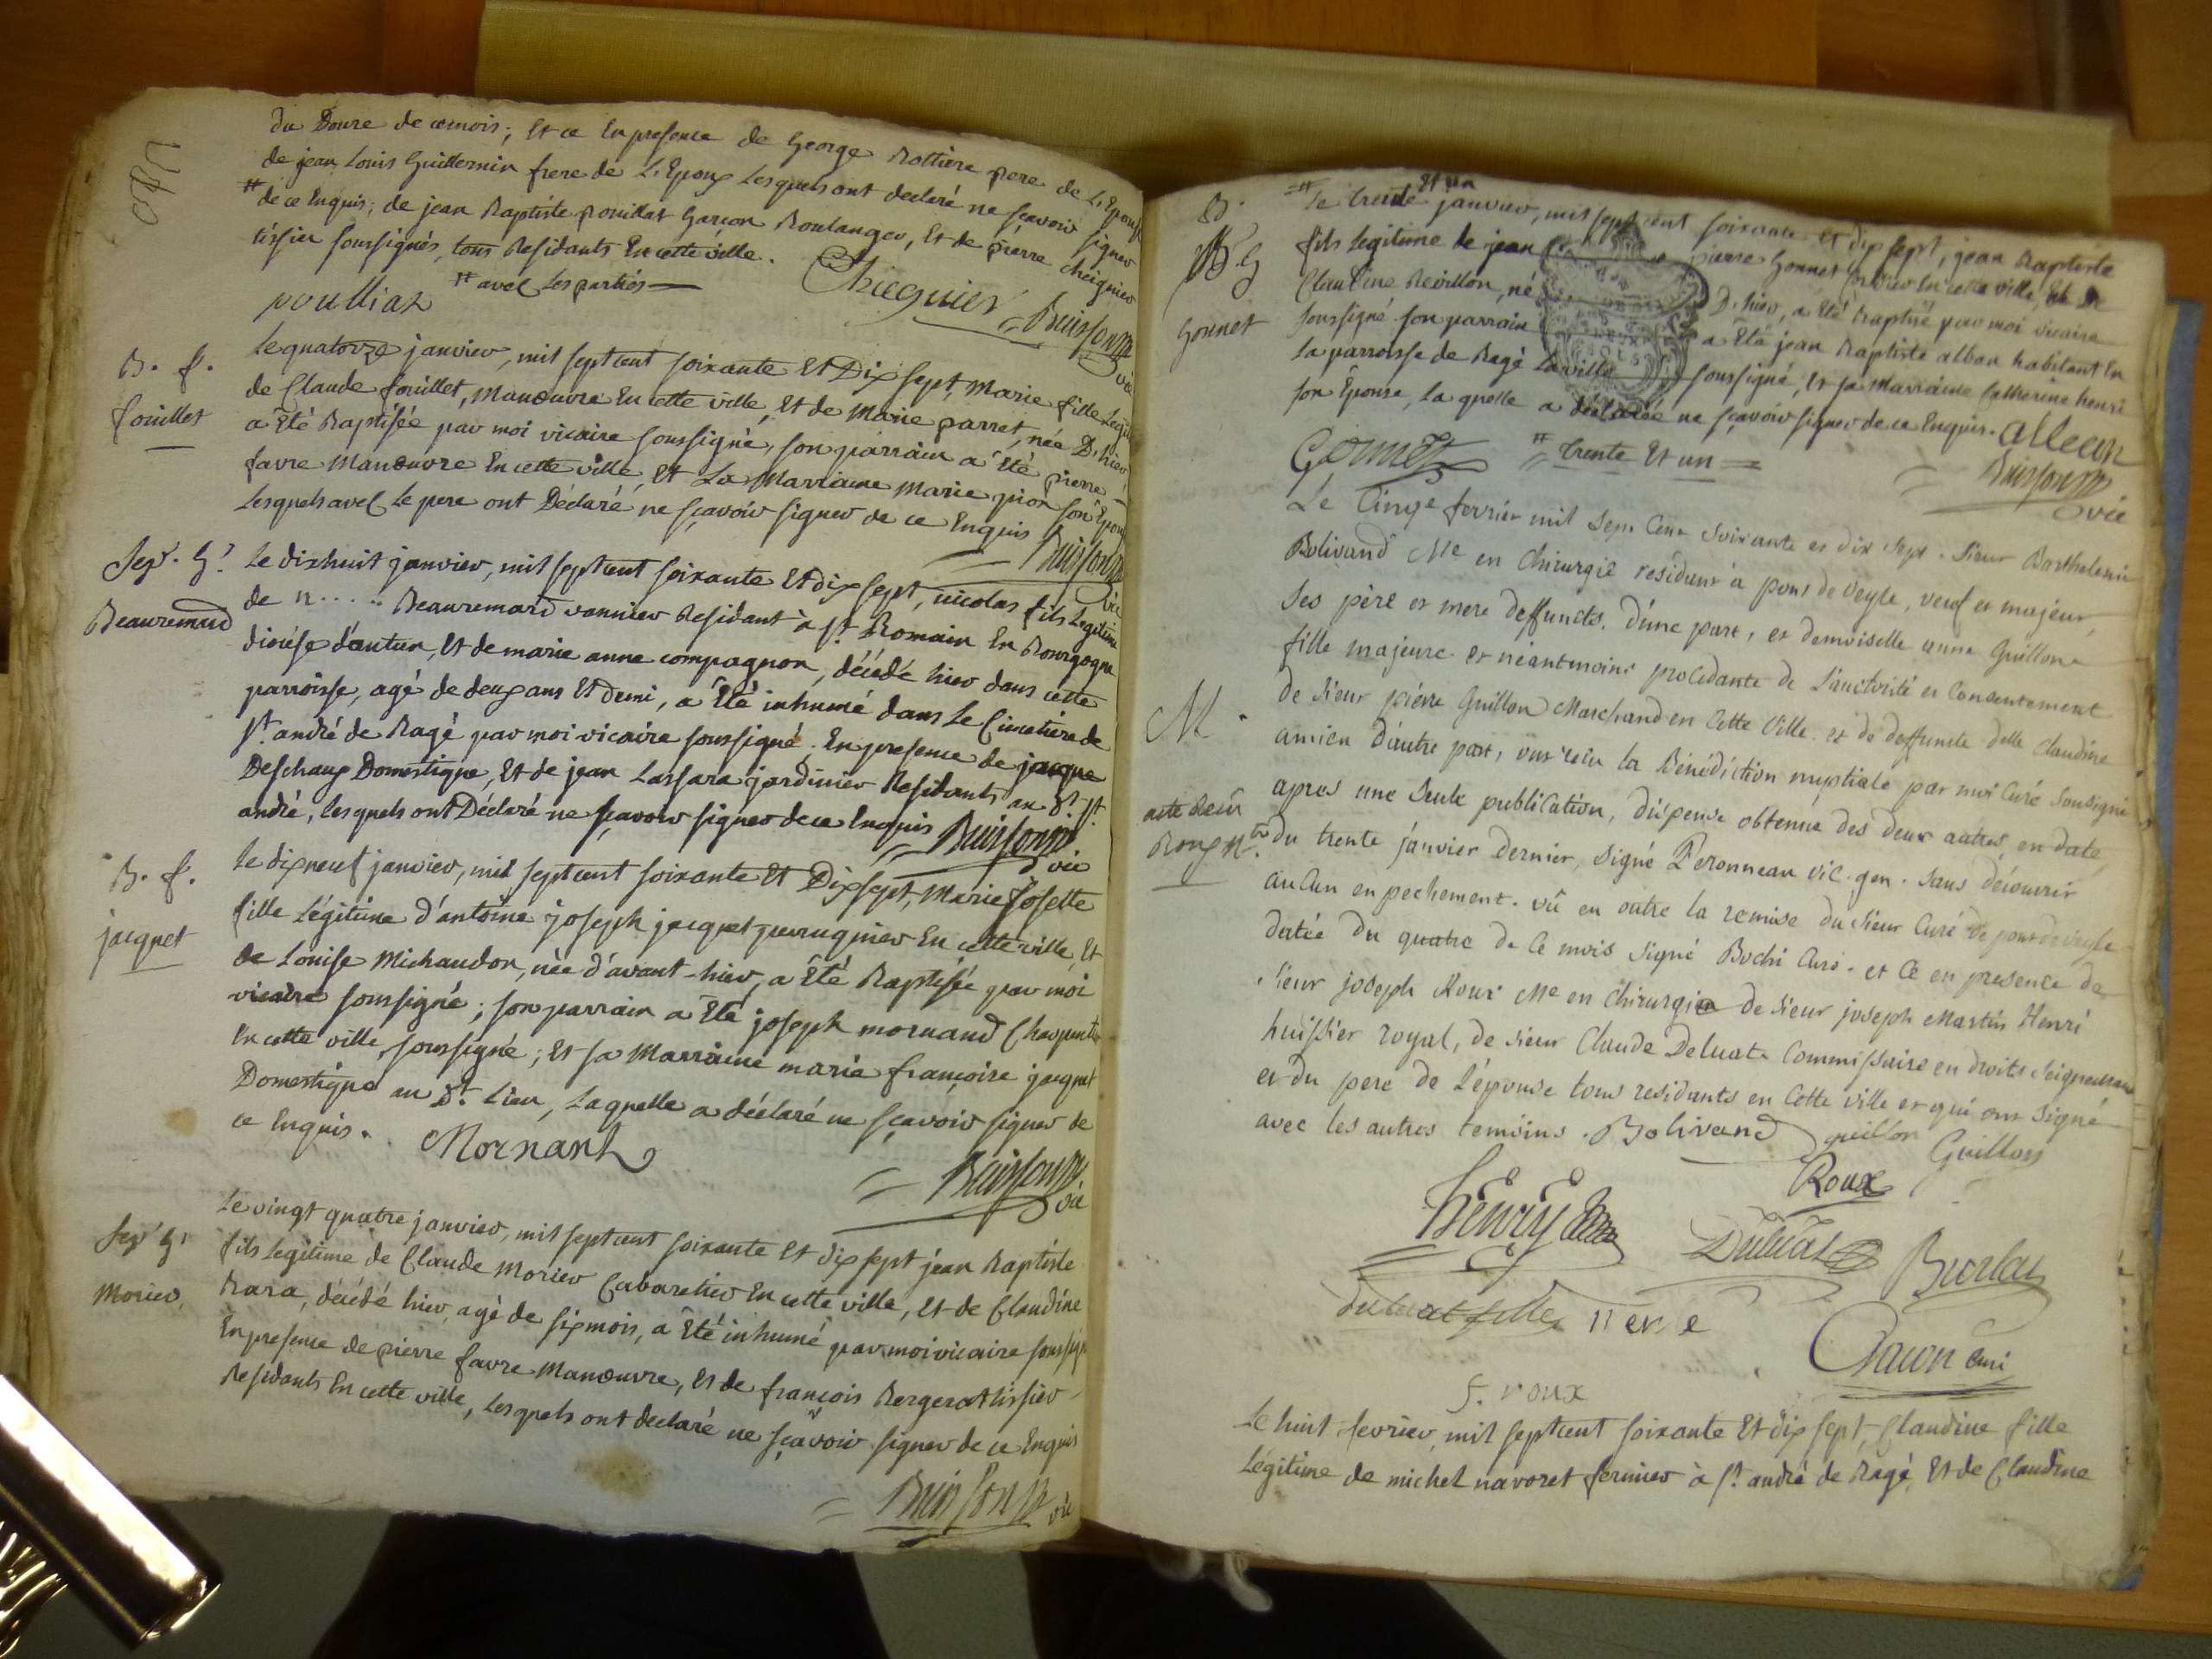 du Douze de ce mois; Et ce En presence de George Rottiere pere de L'Epouse
de jean Louis Guillermin frere de L'Epoux Lesquels ont declaré ne sçavoir signer
# de ce Enquis; de jean Baptiste pouillat Garçon Boulanger, Et de pierre cheignier
tissier soussignés, tous Residants En cette ville.
# avec Les parties —
poulliaz
Chiegnier
Buisson vic
B. f.
fouillet
Le quatorze janvier, mil sept cent soixante Et Dix sept, Marie fille Legit
de Claude fouillet, Manœuvre En cette ville, Et de Marie parret, née D'hier
a Eté Baptisée par moi vicaire soussigné, son parrain a Eté pierre
favre Manœuvre En cette ville, Et La Marraine Marie pion son Epouse
Lesquels avec Le pere ont Déclaré ne sçavoir signer de ce Enquis
Buisson vic
Sep.r G.
Beauremard
Le dixhuit janvier, mil sept cent soixante Et dix sept, nicolas fils Legitime
de n..... Beauremard vannier Residant à St. Romain En Bourgogne
diocése d'autun, Et de marie anne compagnon, décédé hier dans cette
parroisse, agé de deux ans Et demi, a Eté inhumé dans Le Cimetiere de
St. andré de Bagé par moi vicaire soussigné. En presence de jacque
Deschaux Domestique, Et de jean Lassara jardinier Residants au dt. St.
andré, Lesquels ont Déclaré ne sçavoir signer de ce Enquis
Buisson vic
B. f.
jacquet
Le dix neuf janvier, mil sept cent soixante Et Dix sept, Marie josette
fille Légitime d'antoine joseph jacquet perruquier En cette ville, Et
de Louise Michaudon, née d'avant-hier, a Eté Baptisée par moi
vicaire soussigné; son parrain a Eté joseph mornand Charpentier
En cette ville, soussigné; Et sa Marraine marie françoise jacquet
Domestique au dt. Lieu, Laquelle a déclaré ne sçavoir signer de
ce Enquis.
Mornant
Buisson vic
Sep.r G.
Morier
Le vingt quatre janvier, mil sept cent soixante Et dix sept jean Baptiste
fils Legitime de Claude Morier Cabaretier En cette ville, Et de Claudine
Bara, décédé hier, agé de six mois, a Eté inhumé par moi vicaire soussigné
En presence de pierre favre Manœuvre, Et de françois Bergerat tissier
Residants En cette ville, Lesquels ont declaré ne sçavoir signer de ce Enquis
Buisson vic
B.
G
Gonnet
# Le trente Et un janvier, mil sept cent soixante Et dix sept, jean Baptiste
fils Legitime de jean pierre Gonnet Cordier En cette ville, Et de
Claudine Revillon, né D'hier, a Eté Baptisé par moi vicaire
soussigné son parrain a Eté jean Baptiste alban habitant En
La parroisse de Bagé La ville soussigné, Et sa Marraine Catherine henri
son Epouse, La quelle a déclarée ne sçavoir signer de ce Enquis.
alleun
Gonnet
# trente Et un =
Buisson vic
M.
acte dem
Le Cinqe fevrier mil sept Cent soixante et dix sept. Sieur Barthelemi
Bolivand Me en Chirurgie résidant à pont de Veyle, veuf et majeur,
ses père et mere deffuncts, d'une part, et demoiselle anne Guillon
fille majeure et néantmoins procédante de L'auctorité et Consentement
de sieur pierre Guillon Marchand en Cette Ville, et de deffuncte delle Claudine
amien d'autre part, ont reçu la Bénédiction nuptiale par moi Curé soussigné
apres une seule publication, dispense obtenue des deux autres, en date
du trente janvier dernier, signé Peronneau vic. gen. sans découvrir
aucun enpechement. vû en outre la remise du sieur Curé de pont de veyle
datée du quatre de Ce mois signé Bochi Curé. et Ce en presence de
sieur joseph Roux Me en Chirurgie de sieur joseph Martin Henri
huissier royal, de sieur Claude Deluat Commissaire en droits seigneuriaux
et du pere de L'épouse tous residants en Cette ville et qui ont signé
avec les autres temoins. Bolivand guillon Guillon
Roux
henry
Duluat
Burlat
duluat fille
Chacon curé
f. roux
Le huit fevrier, mil sept cent soixante Et dix sept, Claudine fille
Légitime de michel navoret fermier à St. andré de Bagé, Et de Claudine